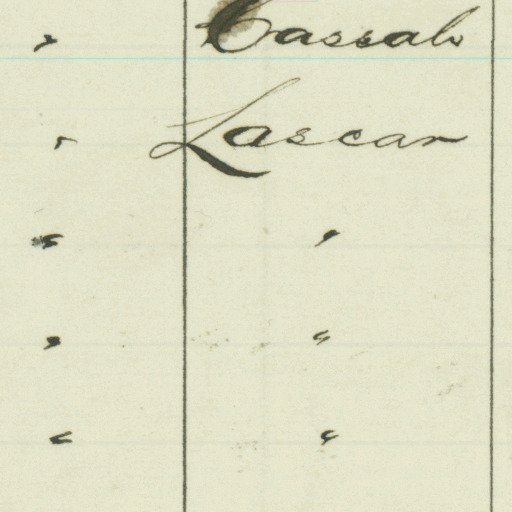 " Cassab
" Lascar
" "
" "
" "